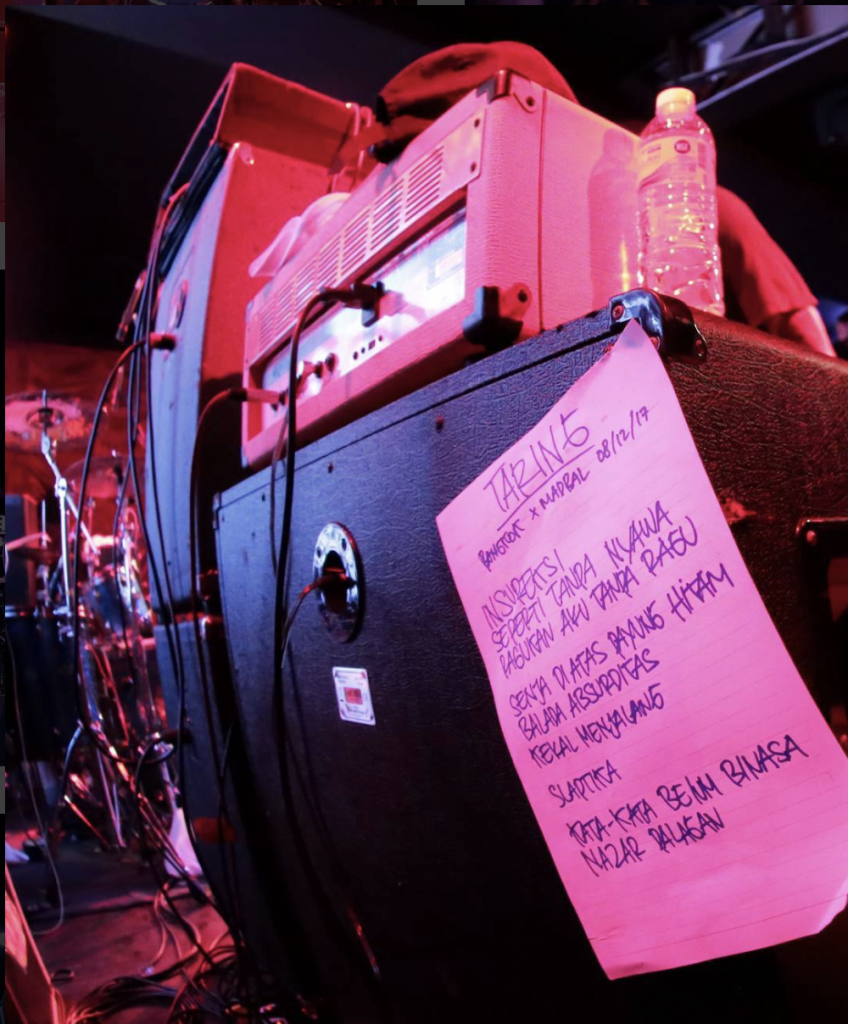 TARING
BANGKOK X MADBAL 08/12/17
INSUREKSI
SEPERTI TANPA NYAWA
RAGUKAN AKU TANPA RAGU
SENJA DI ATAS PAYUNG HITAM
BALADA ABSURDITAS
KEKAL MENYALANG
SLAPTIKA
KATA-KATA BELUM BINASA
NAZAR PALAGAN